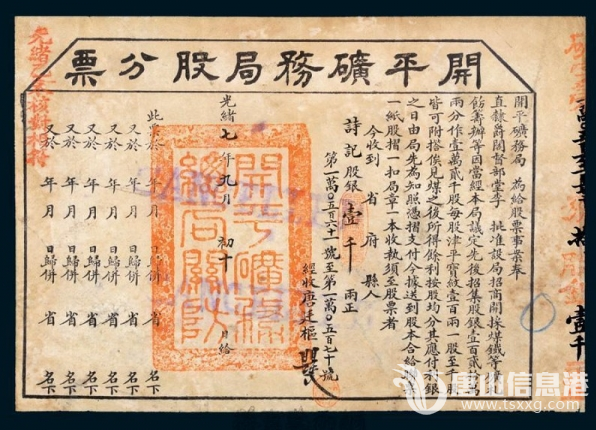 開平礦務局股分票
開平礦務局 為給股票事案奉
直隸爵閣督部堂李 批准設局招商開採煤鐵等
飭籌辦等因當經本局議定先後招集股銀壹百貳
兩分作壹萬貳千股每股津平寶紋壹百兩一股至千股
皆可附搭俟見煤之後所得餘利按股均分其應付利銀
之日由局先為知照憑摺支付今據送到股本合給
一紙股摺一扣局章一本收執須至股票者
今收到 省 府 縣人
詩記 股銀 壹千 兩正
第一萬〇五百六十一號至第一萬〇五百七十號
經收唐廷樞
光緒七年九月初十 日給
此票於 年 月 日歸併 省 名下
又於 年 月 日歸併 省 名下
又於 年 月 日歸併 省 名下
又於 年 月 日歸併 省 名下
又於 年 月 日歸併 省 名下
又於 年 月 日歸併 省 名下
唐山信息港
www.tsxxg.com